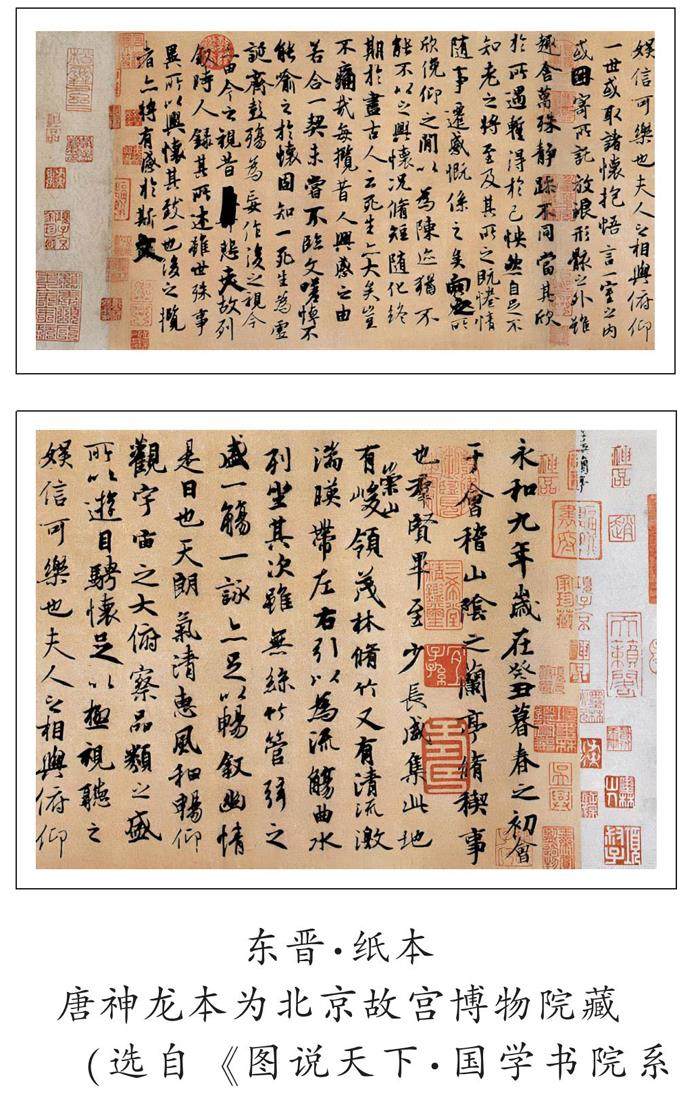 娛信可樂也夫人之相與俯仰
一世或取諸懷抱悟言一室之內
或因寄所託放浪形骸之外雖
趣舍萬殊靜躁不同當其欣
於所遇蹔得於己怏然自足不
知老之將至及其所之既惓情
隨事遷感慨係之矣向之所
欣俛仰之閒以為陳迹猶不
能不以之興懷況脩短隨化終
期於盡古人云死生亦大矣豈
不痛哉每攬昔人興感之由
若合一契未嘗不臨文嗟悼不
能喻之於懷固知一死生為虛
誕齊彭殤為妄作後之視今
亦由今之視昔悲夫故列
敘時人錄其所述雖世殊事
異所以興懷其致一也後之攬
者亦將有感於斯文
永和九年歲在癸丑暮春之初會
于會稽山陰之蘭亭脩稧事
也羣賢畢至少長咸集此地
有崇山峻領茂林脩竹又有清流激
湍暎帶左右引以為流觴曲水
列坐其次雖無絲竹管弦之
盛一觴一詠亦足以暢敘幽情
是日也天朗氣清惠風和暢仰
觀宇宙之大俯察品類之盛
所以遊目騁懷足以極視聽之
娛信可樂也夫人之相與俯仰
东晋·纸本
唐神龙本为北京故宫博物院藏
(选自《图说天下·国学书院系